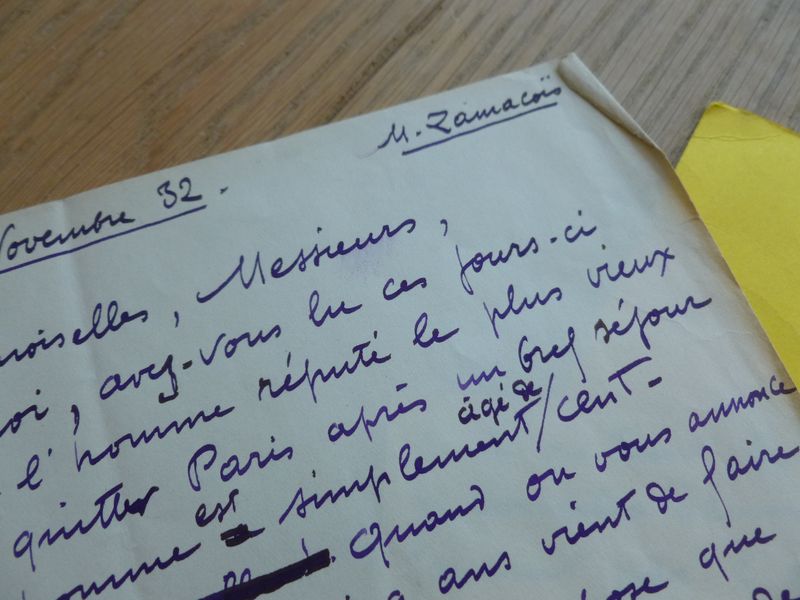 M. Zamacoïs
Novembre 32.
moiselles, Messieurs,
oi, avez-vous lu ces jours-ci
l'homme réputé le plus vieux
quitter Paris après un bref séjour
âgé de
homme est simplement/cent-
! Quand on vous annonce
ans vient de faire
ose que
de